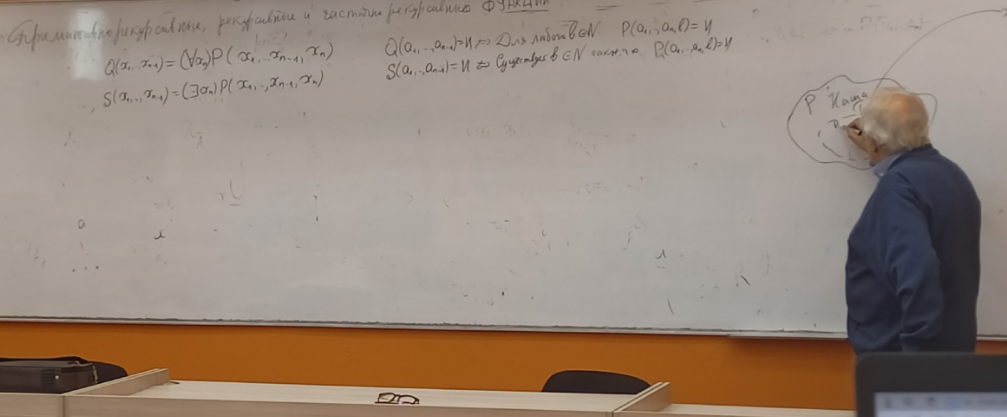 Примитивно рекурсивные, рекурсивные и частично рекурсивные функции
Q(x₁,..,xₙ₋₁) = (∀xₙ)P(x₁,..,xₙ₋₁,xₙ)
S(x₁,..,xₙ₋₁) = (∃xₙ)P(x₁,..,xₙ₋₁,xₙ)
Q(a₁,..,aₙ₋₁)=И ⇔ Для любого b∈N P(a₁,..,b)=И
S(a₁,..,aₙ₋₁)=И ⇔ Существует b∈N
P